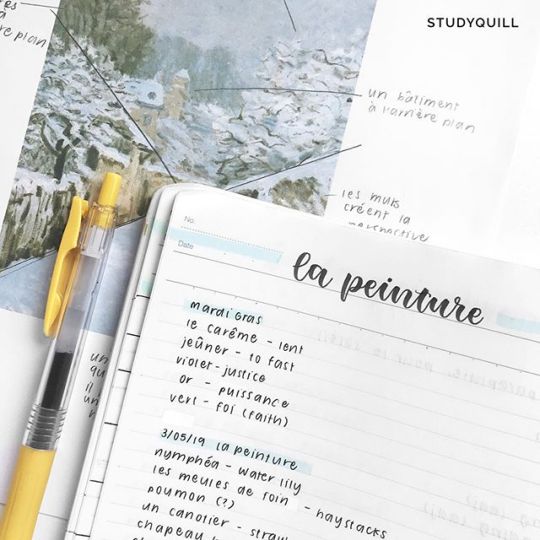 STUDYQUILL
rre plan
un bâtiment
à l'arrière plan
les murs
créent la
perspective
No.
Date
la peinture
mardi gras
le carême - lent
jeûner - to fast
violet - justice
or - puissance
vert - foi (faith)
3/05/19 la peinture
nymphéa - water lily
les meules de foin - haystacks
poumon (?)
un canotier - straw
chapeau